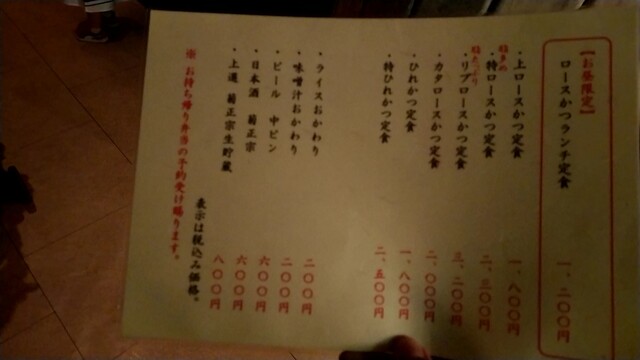 【お昼限定】
ロースかつランチ定食 一、二〇〇円
・上ロースかつ定食 一、八〇〇円
脂多め
・特ロースかつ定食 二、三〇〇円
脂たっぷり
・リブロースかつ定食 三、二〇〇円
・カタロースかつ定食 二、〇〇〇円
・ひれかつ定食 一、八〇〇円
・特ひれかつ定食 二、五〇〇円
・ライスおかわり 二〇〇円
・味噌汁おかわり 二〇〇円
・ビール 中ビン 六〇〇円
・日本酒 菊正宗 六〇〇円
・上選 菊正宗生貯蔵 八〇〇円
表示は税込み価格。
※ お持ち帰り弁当の予約受け賜ります。